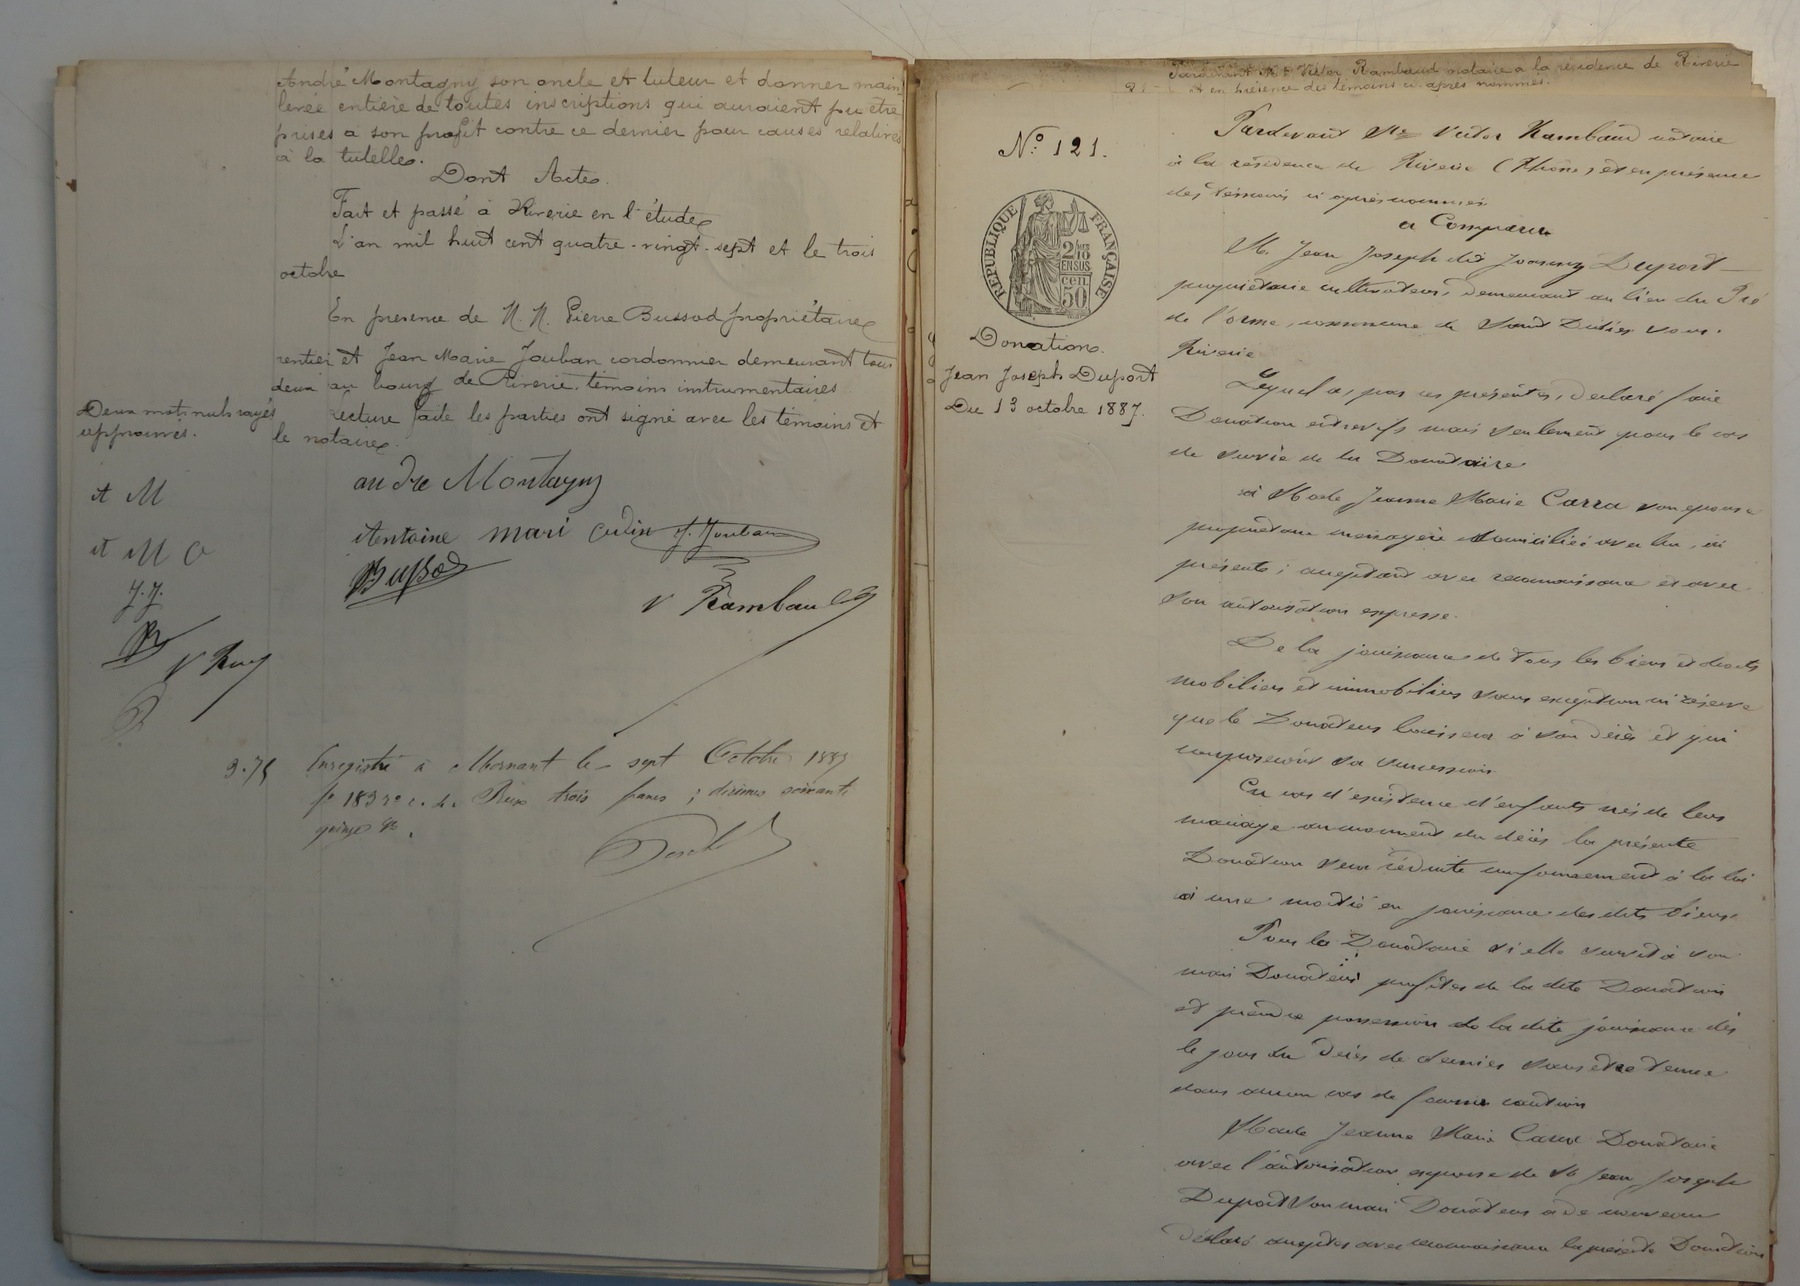 André Montagny son oncle et tuteur et donner main
levée entière de toutes inscriptions qui auraient pu etre
prises à son profit contre ce dernier pour causes relatives
à la tutelle.
Dont Acte.
Fait et passé à Riverie en l'étude
L'an mil huit cent quatre-vingt-sept et le trois
octobre
En presence de M. M. Pierre Bussod propriétaire
rentier et Jean Marie Jouban cordonnier demeurant tous
deux au bourg de Riverie, témoins instrumentaires
Lecture faite les parties ont signé avec les témoins et
le notaire.
Deux mots nuls rayés
approuvés.
andre Montagny
Antoine mari J. Jouban
Bussod
V Rambaud
A M
A M C
J. J.
V Ram
3.75
Enregistré à Mornant le sept Octobre 1887
f° 183 r° c. Reçu trois francs ; décimes soixante
quinze c.
Pardevant Me Victor Rambaud notaire à la résidence de Riverie
et en présence des témoins ci-après nommés.
N° 121.
REPUBLIQUE FRANÇAISE
2/10 EN SUS
50 cen
Donation.
Jean Joseph Duport
Du 13 octobre 1887.
Pardevant Me Victor Rambaud notaire
à la résidence de Riverie (Rhône) et en présence
des témoins ci après nommés
a Comparu
M. Jean Joseph dit Joanny Duport
propriétaire cultivateur, demeurant au lieu du Pré
de l'orme, commune de Saint Didier sous
Riverie
Lequel a, par ces présentes, déclaré faire
Donation entrevifs mais seulement pour le cas
de survie de la Donataire
à Made Jeanne Marie Carra son épouse
propriétaire ménagère domiciliée avec lui, ici
présente ; acceptant avec reconnaissance et avec
son autorisation expresse.
De la jouissance de tous les biens et droits
mobiliers et immobiliers sans exception ni réserve
que le Donateur laissera à son décès et qui
composeront sa succession
En cas d'existence d'enfants nés de leur
mariage au moment du décès la présente
Donation sera réduite conformément à la loi
à une moitié en jouissance des dits biens.
Pour la Donataire si elle survit à son
mari Donateur profiter de la dite Donation
et prendre possession de la dite jouissance dès
le jour du décès de dernier sans etre tenue
dans aucun cas de fournir caution
Made Jeanne Marie Carra Donataire
avec l'autorisation expresse de M Jean Joseph
Duport son mari Donateur a de nouveau
déclaré accepter avec reconnaissance la présente Donation